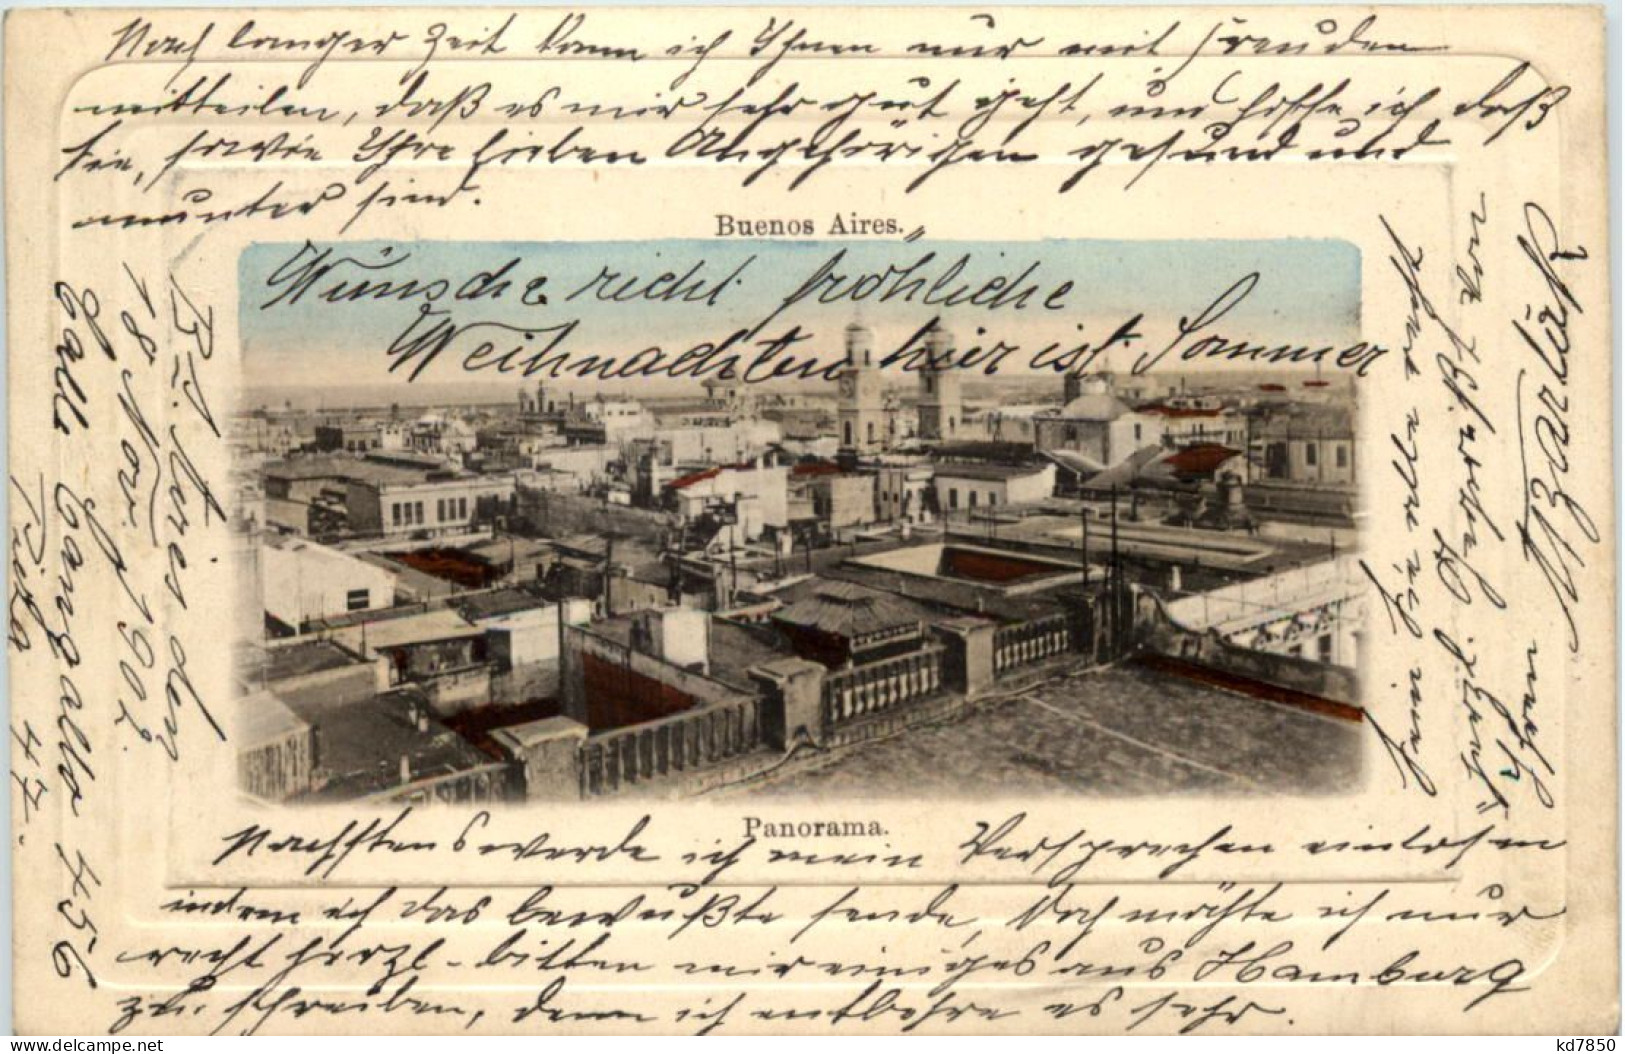 Nach langer Zeit kann ich Ihnen nur mit Freuden
mitteilen, daß es mir sehr gut geht, und hoffe ich daß
Sie, sowie Ihre lieben Angehörigen gesund und
munter sind.
Buenos Aires.
Wünsche recht fröhliche
Weihnachten hier ist Sommer
B. Aires den
18 Nov. 1902.
Calle Cangallo 456
Pieza 47.
Panorama.
Nächstens werde ich mein Versprechen einlösen
indem ich das bewußte sende, Doch möchte ich nur
recht herzl. bitten mir einiges aus Hamburg
zu schreiben, denn ich entbehre es sehr.